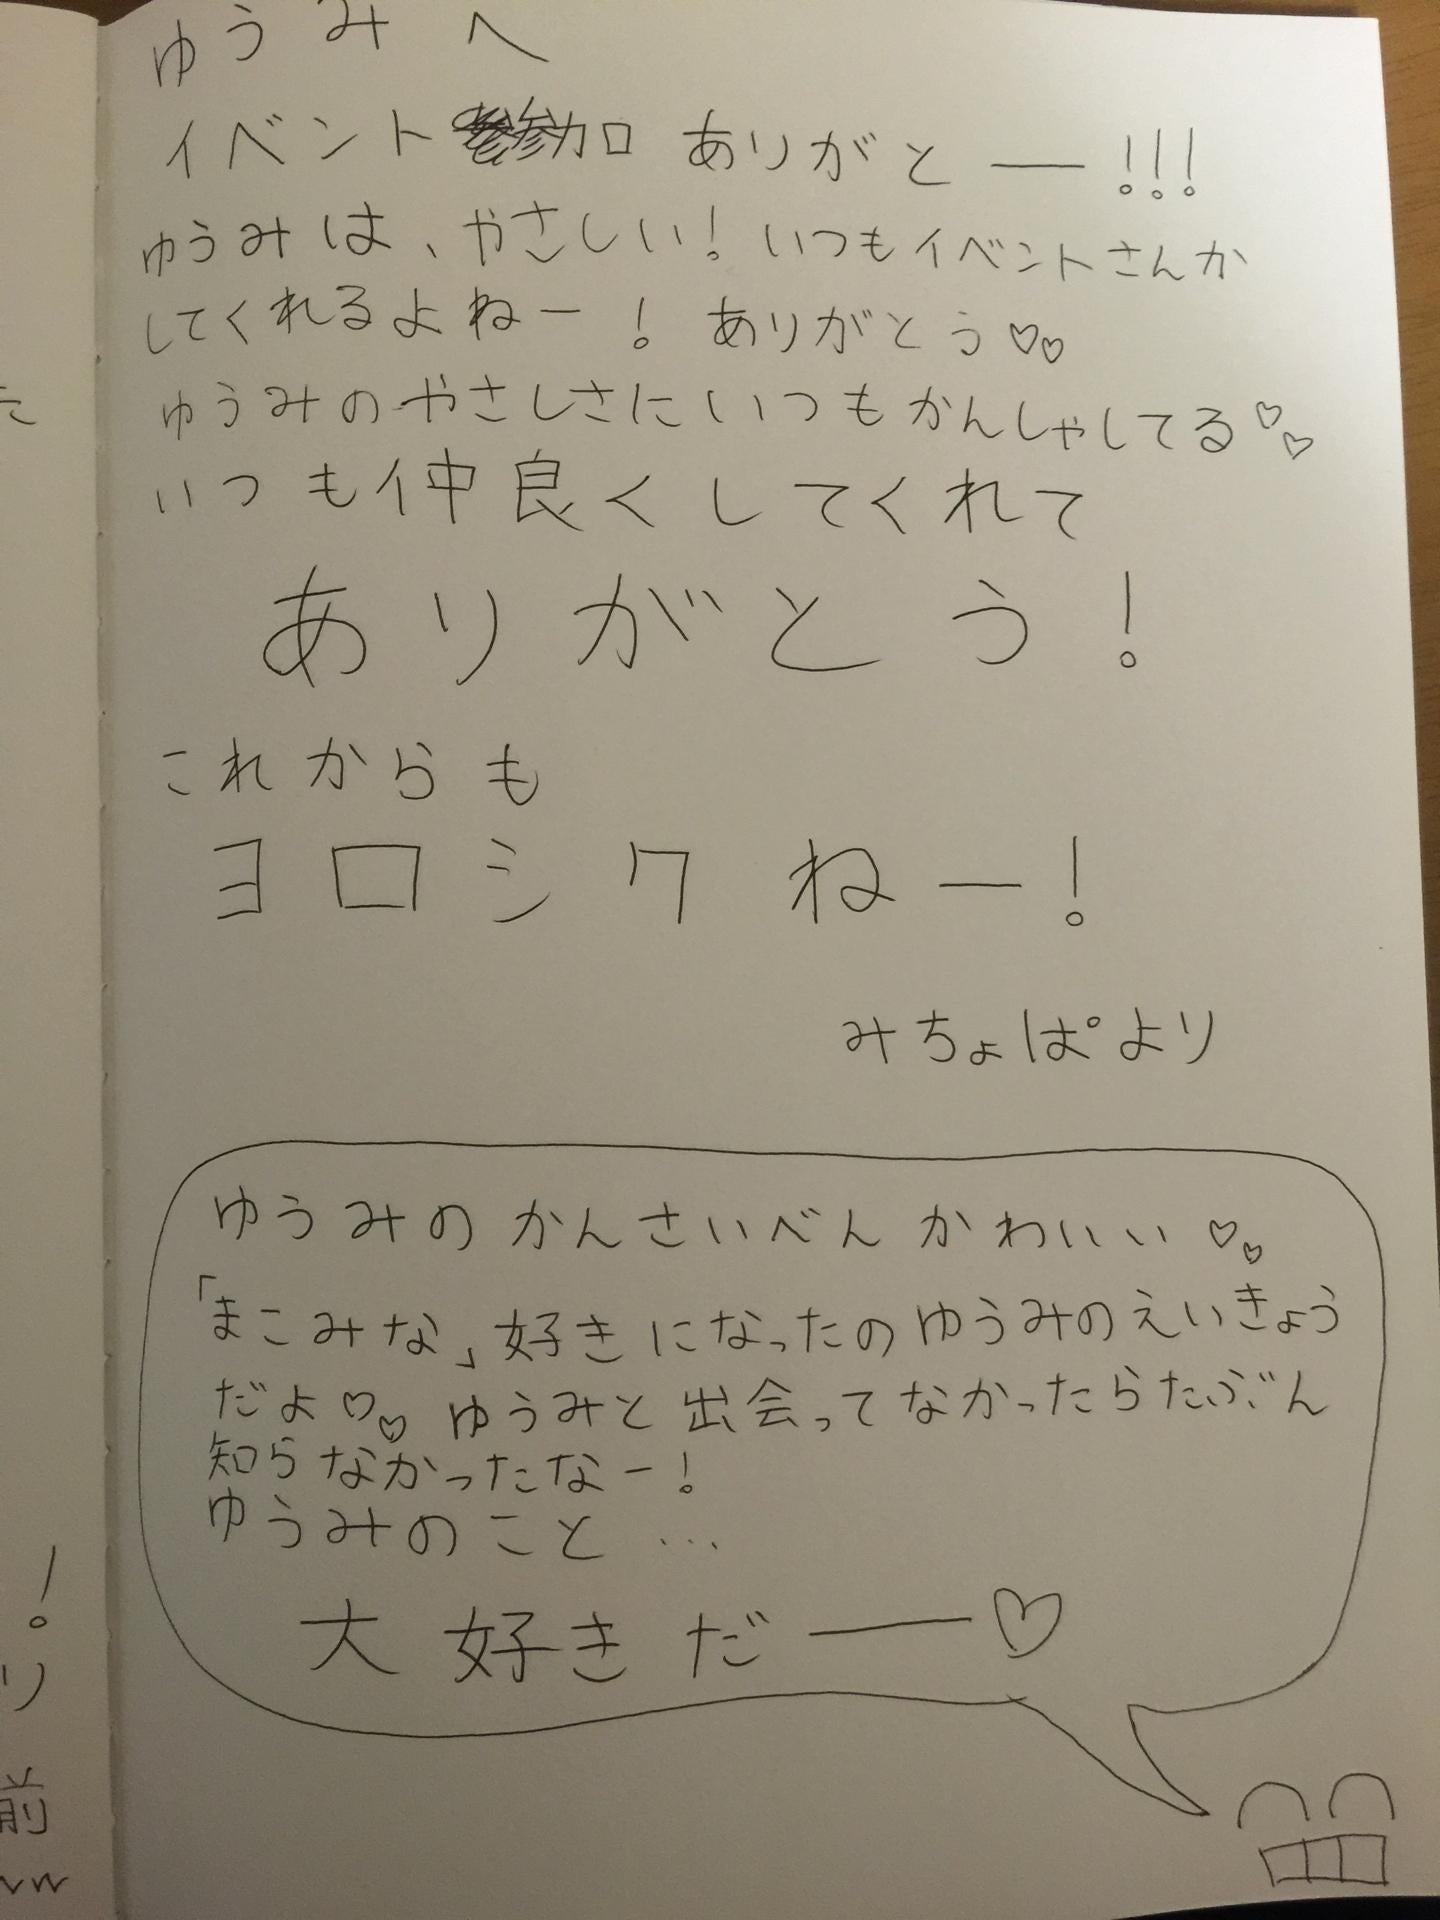 ゆうみへ
イベント参加 ありがとー!!!
ゆうみは、やさしい!いつもイベントさんか
してくれるよねー!ありがとう♡♡
ゆうみのやさしさにいつもかんしゃしてる♡♡
いつも仲良くしてくれて
ありがとう!
これからも
ヨロシクねー!
みちょぱより
ゆうみのかんさいべんかわいい♡♡
「まこみな」好きになったのゆうみのえいきょう
だよ♡♡ ゆうみと出会ってなかったらたぶん
知らなかったなー!
ゆうみのこと…
大好きだー♡
た
!
り
前
ww